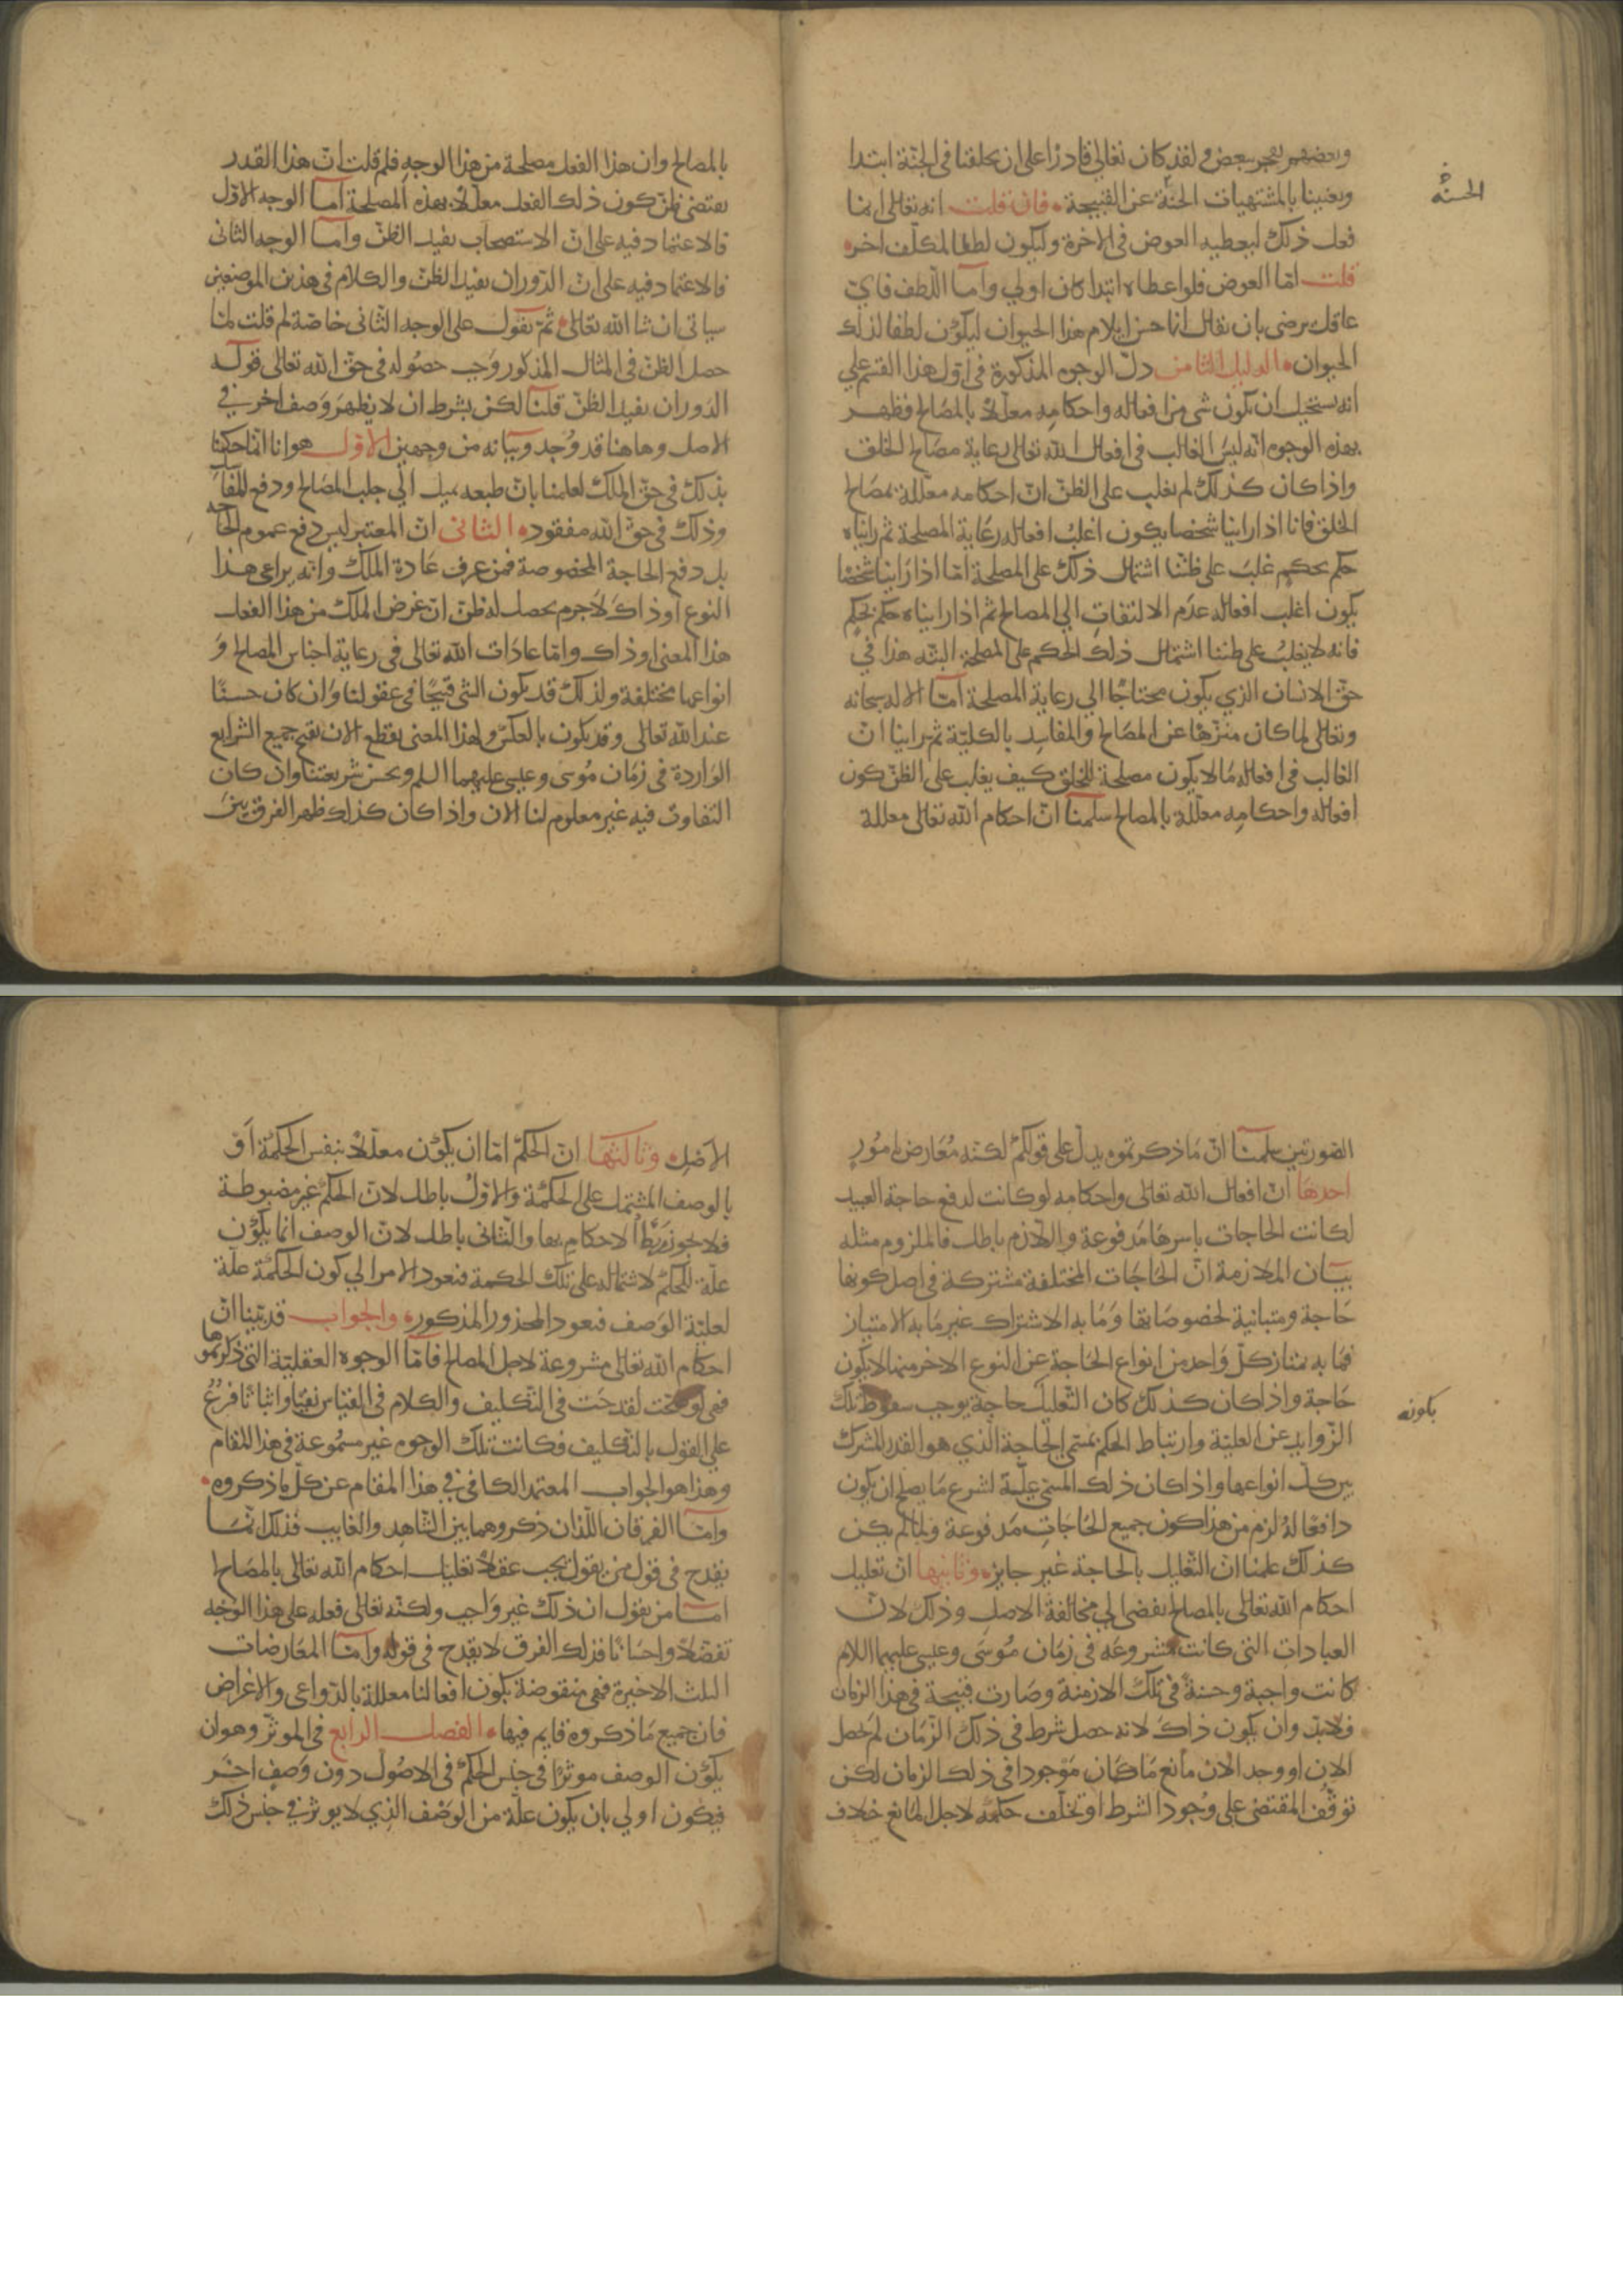 وبعضهم يفجر ببعض ولقد كان تعالى قادرا على ان يخلقنا في الجنة ابتدا
ويغنينا بالمشتهيات الحسنة عن القبيحة فان قلت انه تعالى انما
الحسنة
فعل ذلك ليعطيه العوض في الاخرة وليكون لطفا لمكلف اخر
قلت اما العوض فلو اعطاه ابتدا كان اولي واما اللطف فاي
عاقل يرضى بان يقال انما حسن ايلام هذا الحيوان ليكون لطفا لذلك
الحيوان الدليل الثامن دل الوجوه المذكورة في اول هذا القسم علي
انه يستحيل ان يكون شي من افعاله واحكامه معللا بالمصالح فظهر
بهذه الوجوه انه ليس الغالب في افعال الله تعالى رعاية مصالح الخلق
واذا كان كذلك لم يغلب على الظن ان احكامه معللة بمصالح
الخلق فانا اذا راينا شخصا يكون اغلب افعاله رعاية المصلحة ثم رايناه
حكم بحكم غلب على ظننا اشتمال ذلك على المصلحة اما اذا راينا شخصا
يكون اغلب افعاله عدم الالتفات الي المصالح ثم اذا رايناه حكم بحكم
فانه لا يغلب على ظننا اشتمال ذلك الحكم على المصلحة البتة هذا في
حق الانسان الذي يكون محتاجا الي رعاية المصلحة اما الاله سبحانه
وتعالى لما كان منزها عن المصالح والمفاسد بالكلية ثم راينا ان
الغالب في افعاله ما لا يكون مصلحة للخلق كيف يغلب على الظن كون
افعاله واحكامه معللة بالمصالح سلمنا ان احكام الله تعالى معللة
بالمصالح وان هذا الفعل مصلحة من هذا الوجه فلم قلت ان هذا القدر
يقتضي ظن كون ذلك الفعل معللا بهذه المصلحة اما الوجه الاول
فالاعتماد فيه على ان الاستصحاب يفيد الظن واما الوجه الثاني
فالاعتماد فيه على ان الدوران يفيد الظن والكلام في هذين الموضعين
سياتي ان شا الله تعالى ثم نقول على الوجه الثاني خاصة لم قلت لما
حصل الظن في المثال المذكور وجب حصوله في حق الله تعالى قوله
الدوران يفيد الظن قلنا لكن بشرط ان لا يظهر وصف اخر في
الاصل وهاهنا قد وجد وبيانه من وجهين الاول هو انا انما حكمنا
بذلك في حق الملك لعلمنا بان طبعه يميل الي جلب المصالح ودفع المفاسد
وذلك في حق الله مفقود الثاني ان المعتبر ليس دفع عموم الحاجة
بل دفع الحاجة المخصوصة فمن عرف عادة الملك وانه يراعي هذا
النوع او ذاك لا جرم يحصل له ظن ان غرض الملك من هذا الفعل
هذا المعنى او ذاك واما عادات الله تعالى في رعاية اجناس المصالح و
انواعها مختلفة ولذلك قد يكون الشي قبيحا في عقولنا وان كان حسنا
عند الله تعالى وقد يكون بالعكس ولهذا المعنى نقطع الان بقبح جميع الشرايع
الواردة في زمان موسى وعيسى عليهما السلم وبحسن شريعتنا وان كان
التفاوت فيه غير معلوم لنا الان واذا كان كذلك ظهر الفرق بين
الصورتين سلمنا ان ما ذكرتموه يدل على قولكم لكنه معارض بامور
احدها ان افعال الله تعالى واحكامه لو كانت لدفع حاجة العبيد
لكانت الحاجات باسرها مدفوعة واللازم باطل فالملزوم مثله
بيان الملازمة ان الحاجات المختلفة مشتركة في اصل كونها
حاجة ومتباينة بخصوصياتها وما به الاشتراك غير ما به الامتياز
فما به يمتاز كل واحد من انواع الحاجة عن النوع الاخر منها لا يكون
حاجة واذا كان كذلك كان التعليل حاجة يوجب سقوط تلك
بكونه
الزوايد عن العلية وارتباط الحكم بمسمى الحاجة الذي هو القدر المشترك
بين كل انواعها واذا كان ذلك المسمى علة لشرع ما يصلح ان يكون
دافعا له لزم من هذا كون جميع الحاجات مدفوعة ولما لم يكن
كذلك علمنا ان التعليل بالحاجة غير جايز وثانيها ان تعليل
احكام الله تعالى بالمصالح يفضي الي مخالفة الاصل وذلك لان
العبادات التي كانت مشروعه في زمان موسى وعيسى عليهما السلام
كانت واجبة وحسنة في تلك الازمنة وصارت قبيحة في هذا الزمان
فلابد وان يكون ذاك لانه حصل شرط في ذلك الزمان لم يحصل
الان او وجد الان مانع ما كان موجودا في ذلك الزمان لكن
توقف المقتضى على وجود الشرط او تخلف حكمه لاجل المانع خلاف
الاصل وثالثها ان الحكم اما ان يكون معللا بنفس الحكمة او
بالوصف المشتمل على الحكمة والاول باطل لان الحكم غير مضبوطة
فلا يجوز ربط الاحكام بها والثاني باطل لان الوصف انما يكون
علة للحكم لاشتماله على تلك الحكمة فيعود الامر الي كون الحكمة علة
لعلية الوصف فيعود المحذور المذكور والجواب قد بينا ان
احكام الله تعالى مشروعة لاجل المصالح فاما الوجوه العقلية التي ذكرتموها
فهي لو صحت لقدحت في التكليف والكلام في القياس نفيا واثباتا فرع
علي القول بالتكليف فكانت تلك الوجوه غير مسموعة في هذا المقام
وهذا هو الجواب المعتمد الكافي في هذا المقام عن كل ما ذكروه
واما الفرقان اللذان ذكروهما بين الشاهد والغايب فذلك انما
يقدح في قول من يقول يجب عقلا تعليل احكام الله تعالى بالمصالح
اما من يقول ان ذلك غير واجب ولكنه تعالى فعله على هذا الوجه
تفضلا واحسانا فذلك الفرق لا يقدح في قوله واما المعارضات
الثلث الاخيرة فهي منقوضة بكون افعالنا معللة بالدواعي والاغراض
فان جميع ما ذكروه قايم فيها الفصل الرابع في الموثر وهو ان
يكون الوصف موثرا في جنس الحكم في الاصول دون وصف اخر
فيكون اولي بان يكون علة من الوصف الذي لا يوثر في جنس ذلك